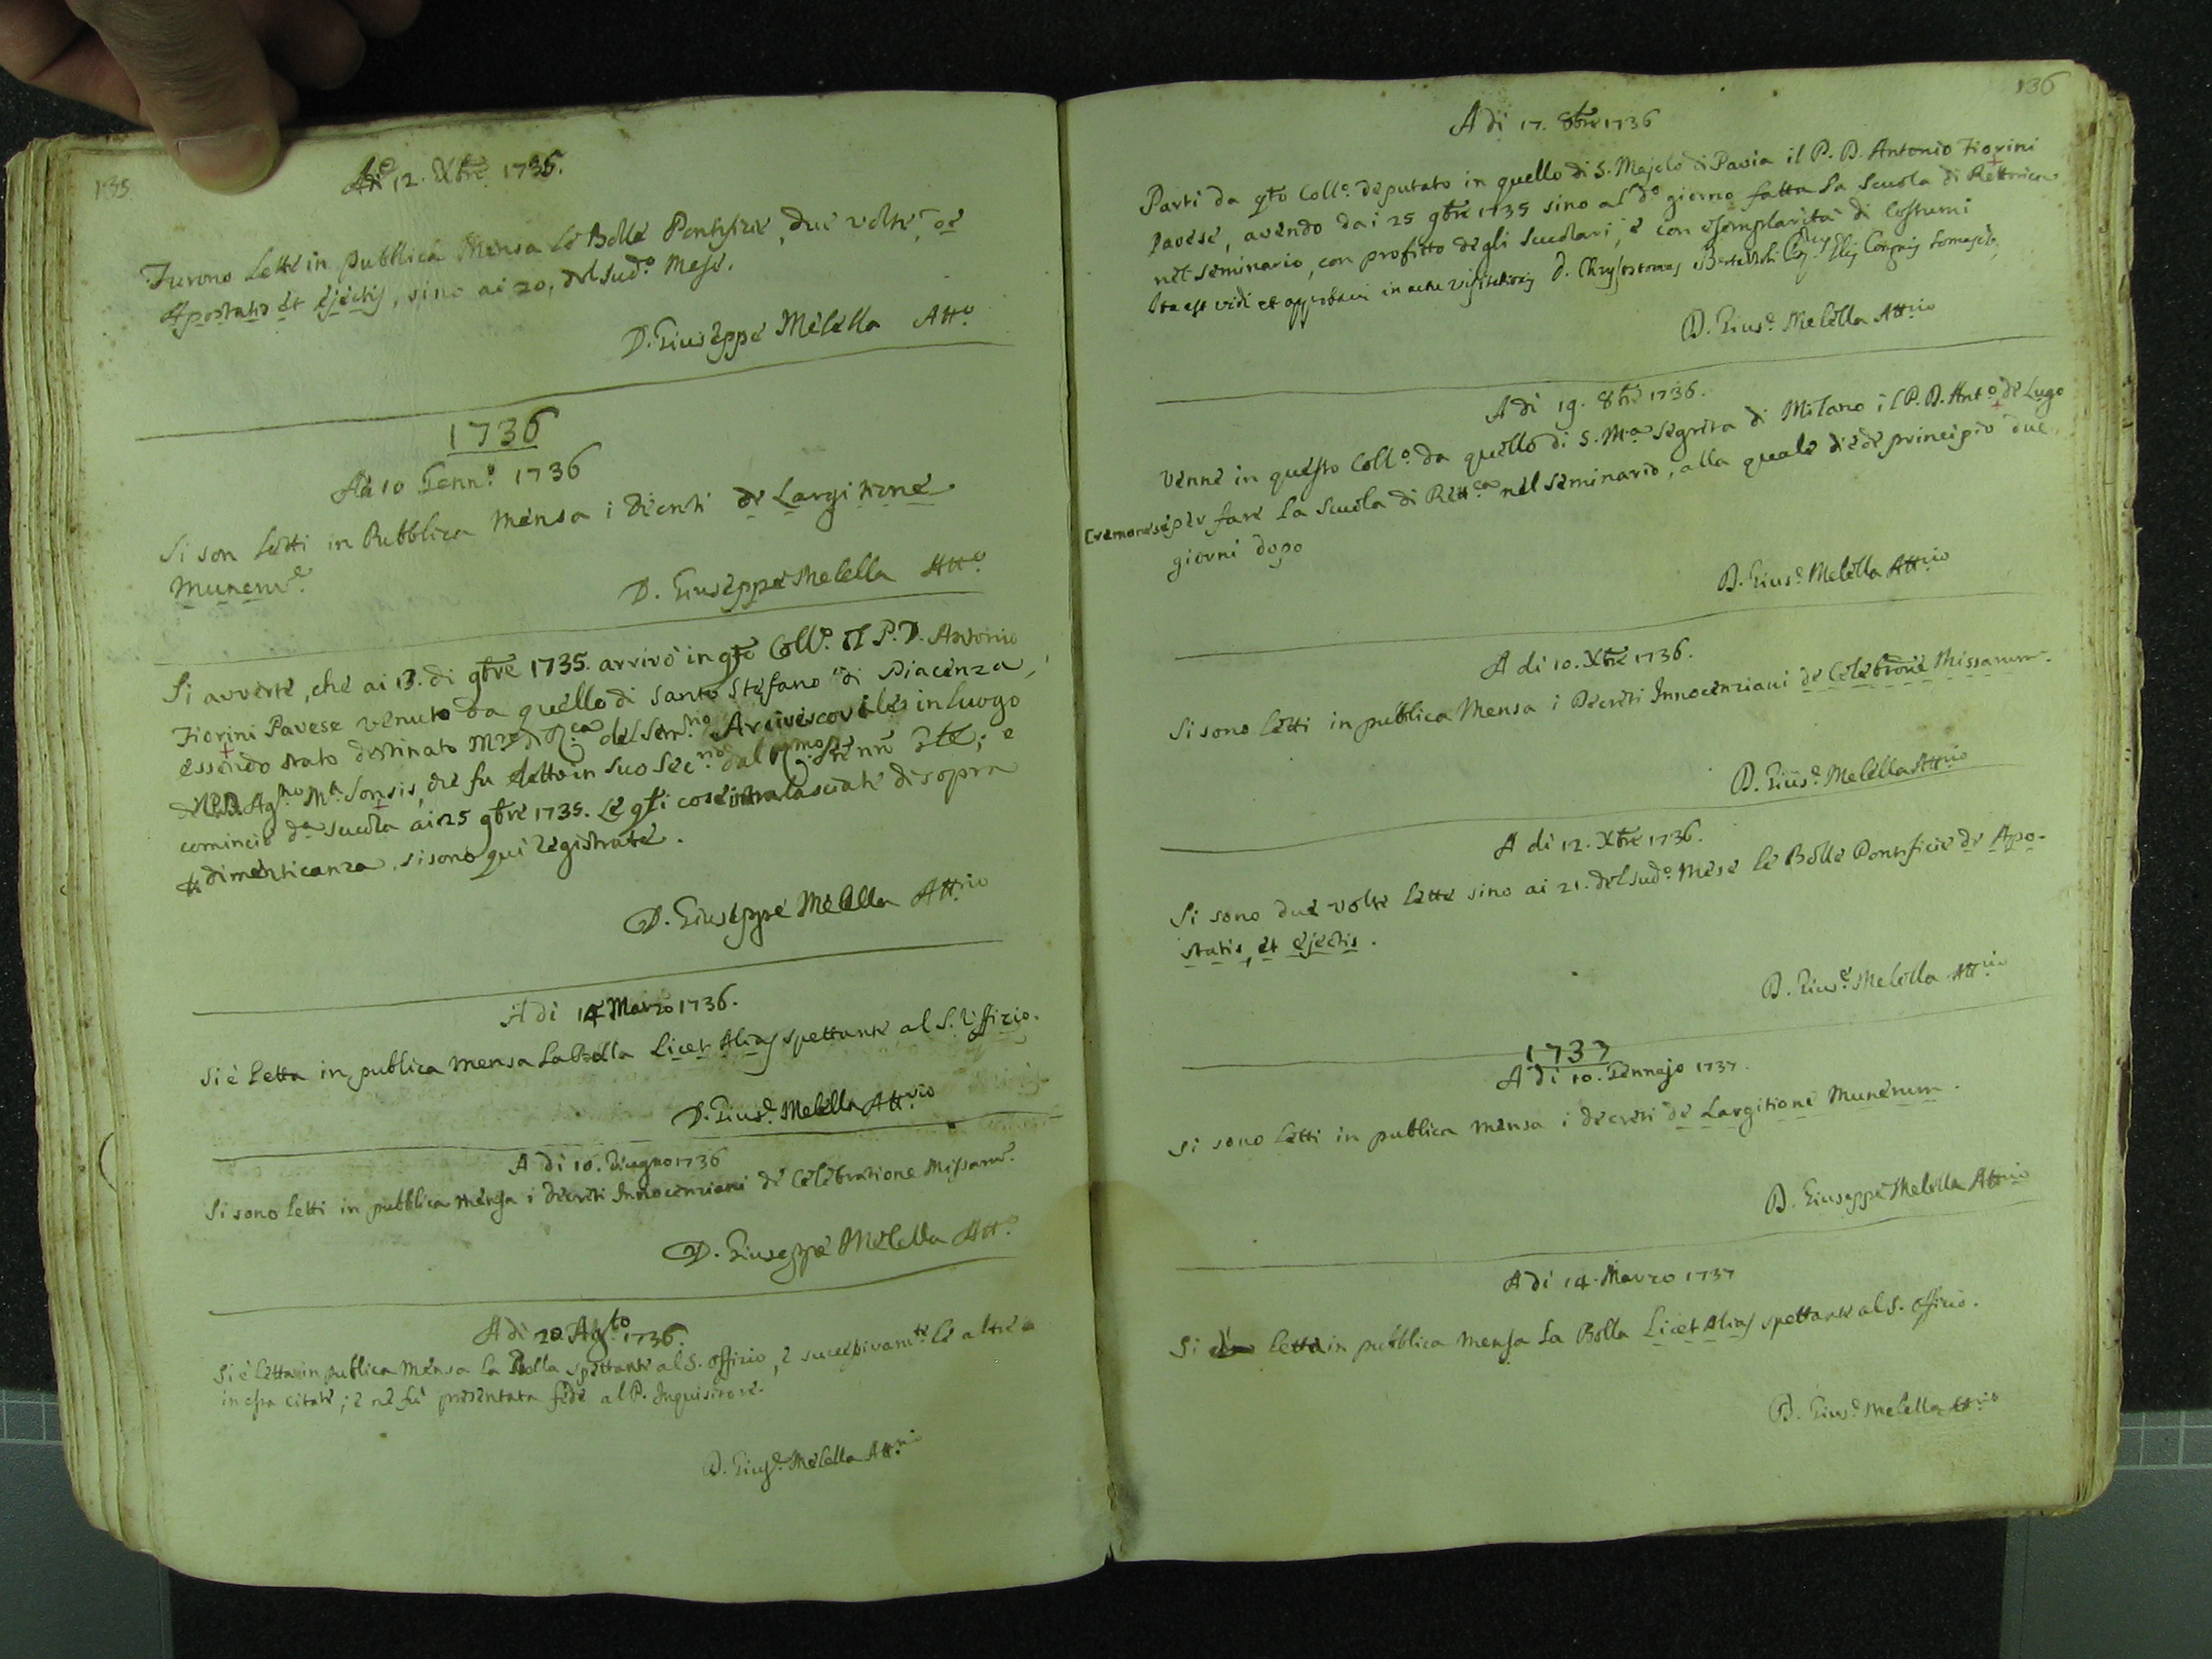 135
Adi 12. Xbre. 1735.
Furono Lette in pubblica Mensa le Bolle Pontificie, due volte, de
Apostatis et ejectis, sino ai 20. del sud.o Mese.
D. Giuseppe Melella Att.o
1736
Adi 10 Genn.o 1736
Si son Letti in Pubblica Mensa i Decreti de Largitione
Munerū.
D. Giuseppe Melella Att.o
Si avverte, che ai 13. di 9bre 1735. arrivò in qto Coll.o il P. D. Antonio
Fiorini Pavese venuto da quello di Santo Stefano di Piacenza,
essendo stato destinato Mro di Rca del Sem.rio Arcivescovile in luogo
del P.D. Ag.no Ma. Sonsis, che fu eletto in suo Sec.rio dal Rmo Pre nro Gle; e
cominciò da scuola ai 25 9bre 1735. Le qti cose intralasciate di sopra
dimenticanza, si sono qui registrate.
D. Giuseppe Melella Att.rio
A di 14 Marzo 1736.
Si è Letta in publica mensa La Bolla Licet Alias spettante al S. Uffizio.
D. Gius.e Melella Att.rio
A di 10. Giugno 1736
Si sono Letti in pubblica mensa i decreti Innocenziani de Celebratione Missarū.
D. Giuseppe Melella Att.o
A di 20 Ag.to 1736.
Si è letta in publica mensa La Bolla spettante al S. Offizio, e successivam.te le altre
in essa citate; e ne fù presentata fede al P. Inquisitore.
D. Gius.e Melella Att.rio
136
A di 17. 8bre 1736
Partì da qto Coll.o deputato in quello di S. Majolo di Pavia il P. D. Antonio Fiorini
Pavese, avendo dai 25 9bre 1735 sino al do giorno fatta la Scuola di Rettorica
nel seminario, con profitto degli scuolari, e con esemplarità di costumi
Ita est vidi et approbavi in actu visitationis D. Chrysostomus Bertazzoli Cong. Somaschę
D. Gius.e Melella Att.rio
A di 19. 8bre 1736.
Venne in questo Coll.o da quello di S. Ma. Segreta di Milano il P. D. Ant.o de Lugo
Cremonese per fare la Scuola di Rett.ca nel seminario, alla quale diede principio due
giorni dopo
D. Gius.e Melella Att.rio
A di 10. Xbre 1736.
Si sono letti in pubblica Mensa i Decreti Innocenziani de Celebrōne Missarum.
D. Gius.e Melella Att.rio
A di 12. Xbre 1736.
Si sono due volte lette sino ai 21. del sud.o mese le Bolle Pontificie de Apo-
statis, et ejectis.
D. Gius.e Melella Att.rio
1737
A di 10. Gennajo 1737.
Si sono letti in publica mensa i decreti de Largitione Munerum.
D. Giuseppe Melella Att.rio
A di 14. Marzo 1737
Si è letta in pubblica mensa la Bolla Licet Alias spettante al S. Offizio.
D. Gius.e Melella Att.rio